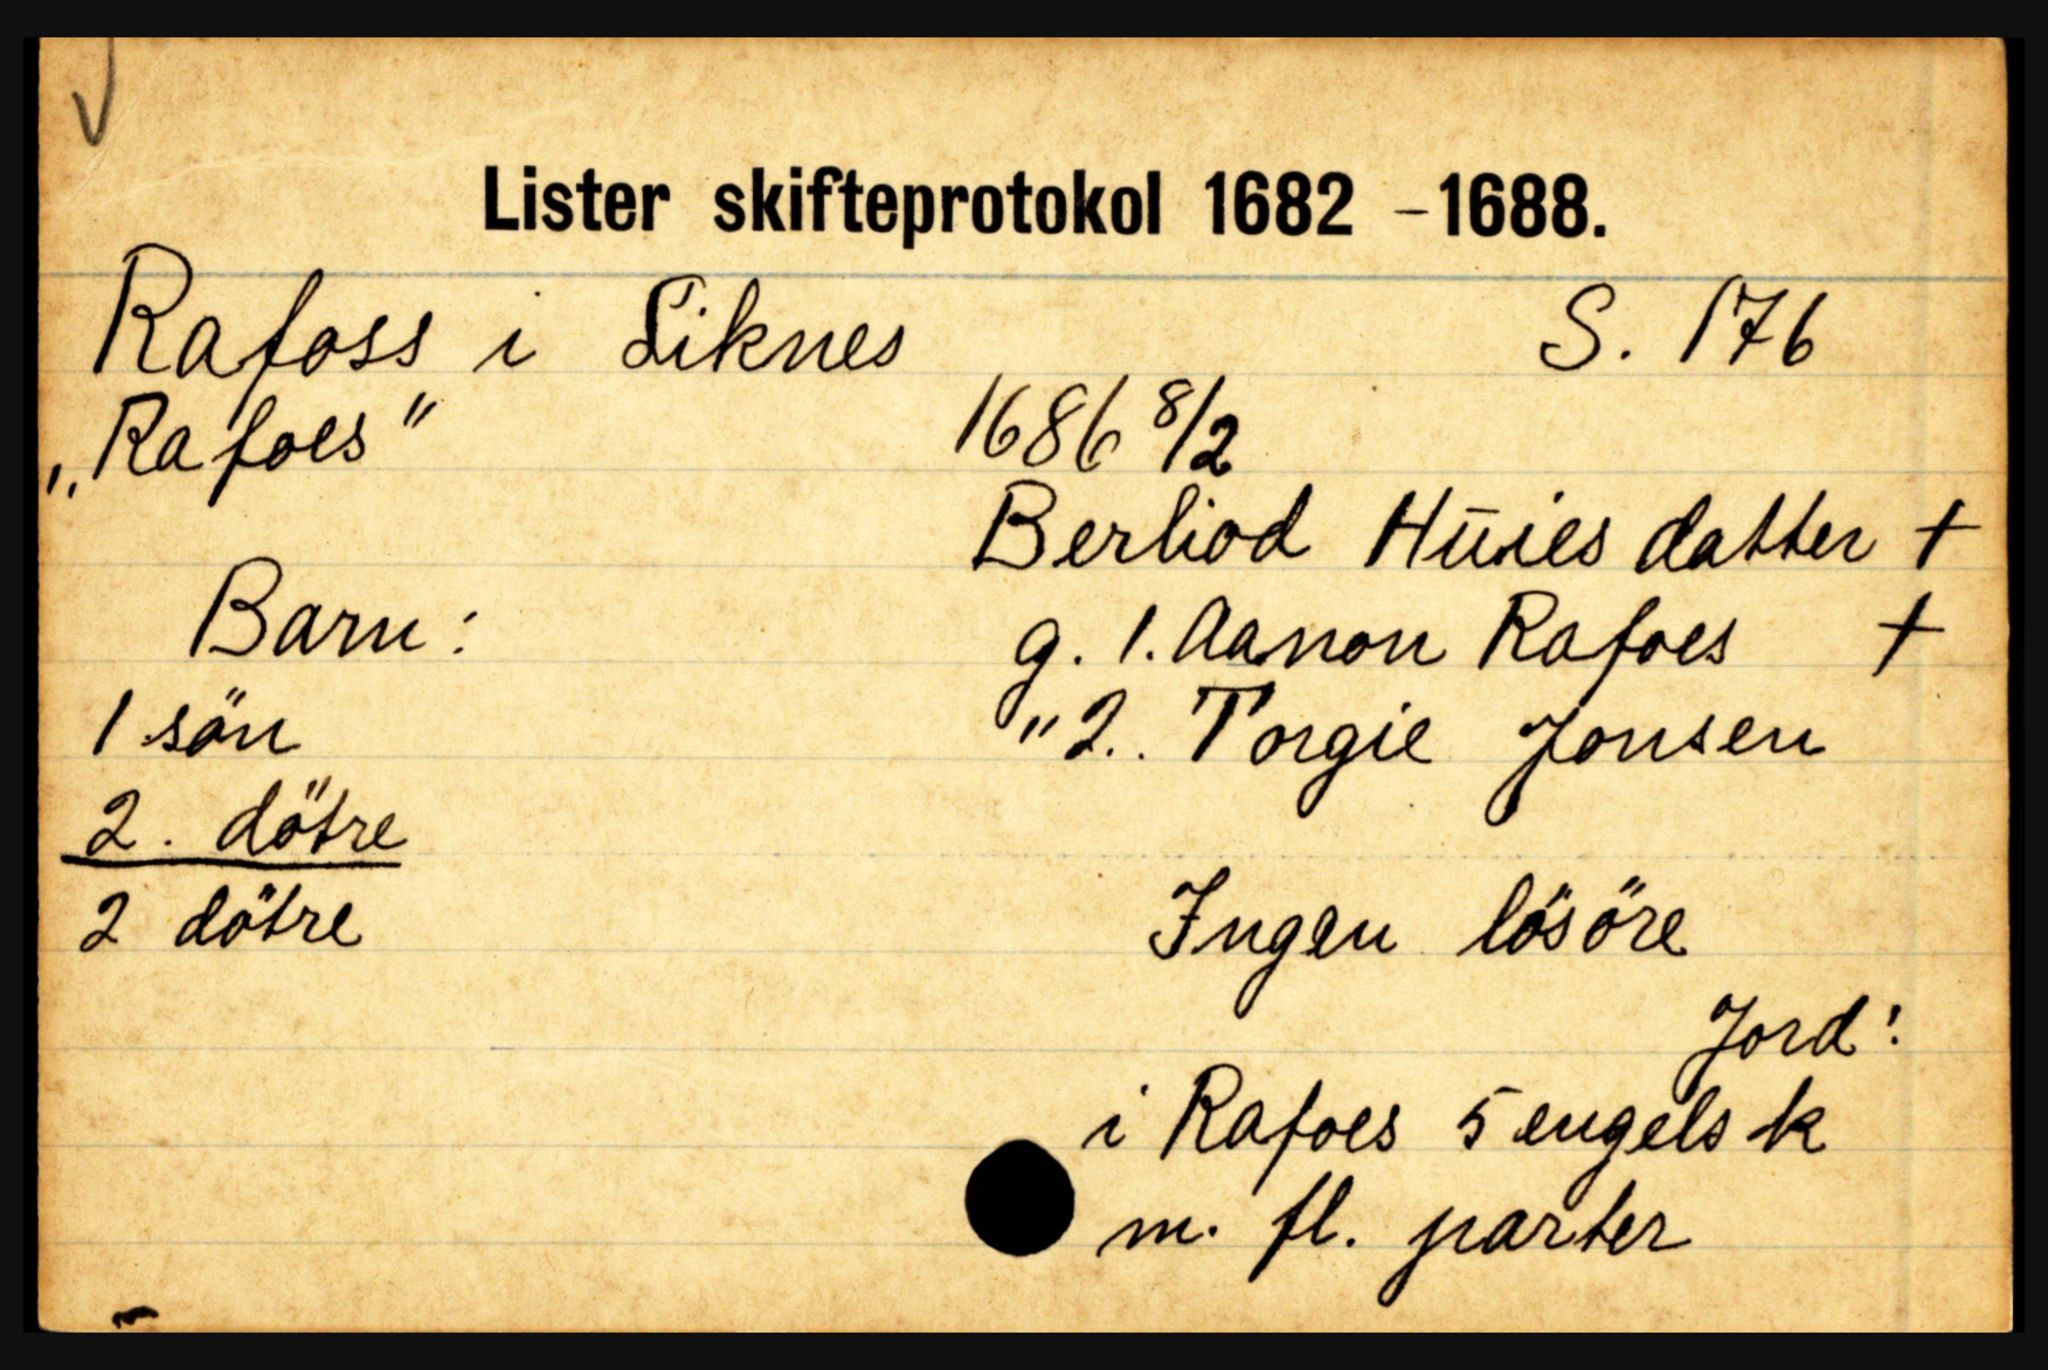 Lister skifteprotokol 1682 - 1688.
Rafoss i Liknes S. 176
„Rafoes" 1686 8/2
Berliod Hūies datter +
Barn: g. 1. Aanon Rafoes +
1 sön " 2. Torgie Jonsen
2. dötre
2 dötre Ingen lösöre
Jord:
i Rafoes 5 engelsk
m. fl. parter